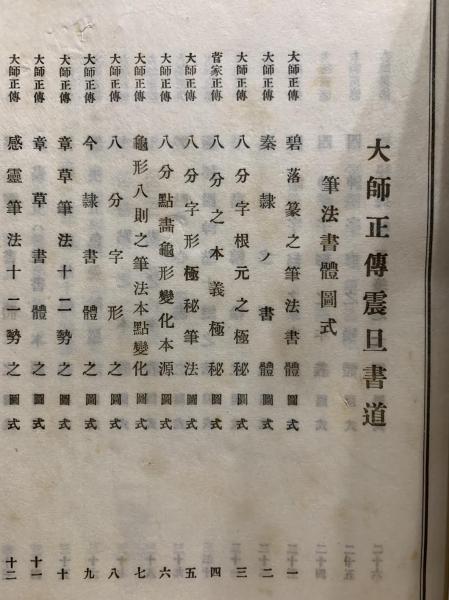 大師正傳震旦書道
筆法書體圖式
大師正傳 碧落篆之筆法書體圖式 一
大師正傳 秦隷ノ書體圖式 二
大師正傳 八分字根元之極秘圖式 三
菅家正傳 八分之本義極秘圖式 四
大師正傳 八分字形極秘筆法圖式 五
大師正傳 八分點畫龜形變化本源圖式 六
大師正傳 龜形八則之筆法本點變化圖式 七
大師正傳 八分字形之圖式 八
大師正傳 今隷書體之圖式 九
大師正傳 章草筆法十二勢之圖式 十
大師正傳 章草書體之圖式 十一
大師正傳 感靈筆法十二勢之圖式 十二